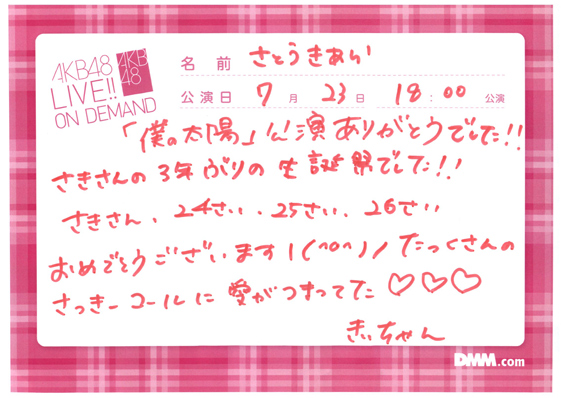 AKB48
LIVE!!
ON DEMAND
AKB
48
名 前 さとうきあい
公演日 7 月 23 日 18 : 00 公演
「僕の太陽」公演ありがとうでした!!
さきさんの3年ぶりの生誕祭でした!!
さきさん、24さい、25さい、26さい
おめでとうございます\(^o^)/たっくさんの
さっきーコールに愛がつまってた♡♡♡
きぃちゃん
DMM.com